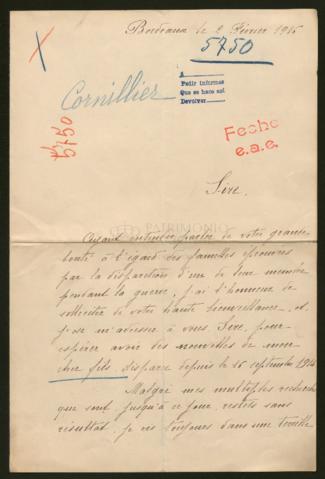 Bordeaux le 2 Février 1916
5750
A
Pedir informes
Que se hace así
Devolver
Cornillier
5750
Fecho
e.a.e.
Sire,
PATRIMONIO
Ayant entendu parler de votre grande
bonté à l'égard des familles éprouvées
par la disparition d'un de leur membre
pendant la guerre, j'ai l'honneur de
solliciter de votre haute bienveillance, et
je me m'adresse à vous Sire, pour
espérer avoir des nouvelles de mon
cher fils, disparu depuis le 16 septembre 1914
Malgré mes multiples recherches
que sont, jusqu'à ce jour, restées sans
résultat, je vis toujours dans une terrible